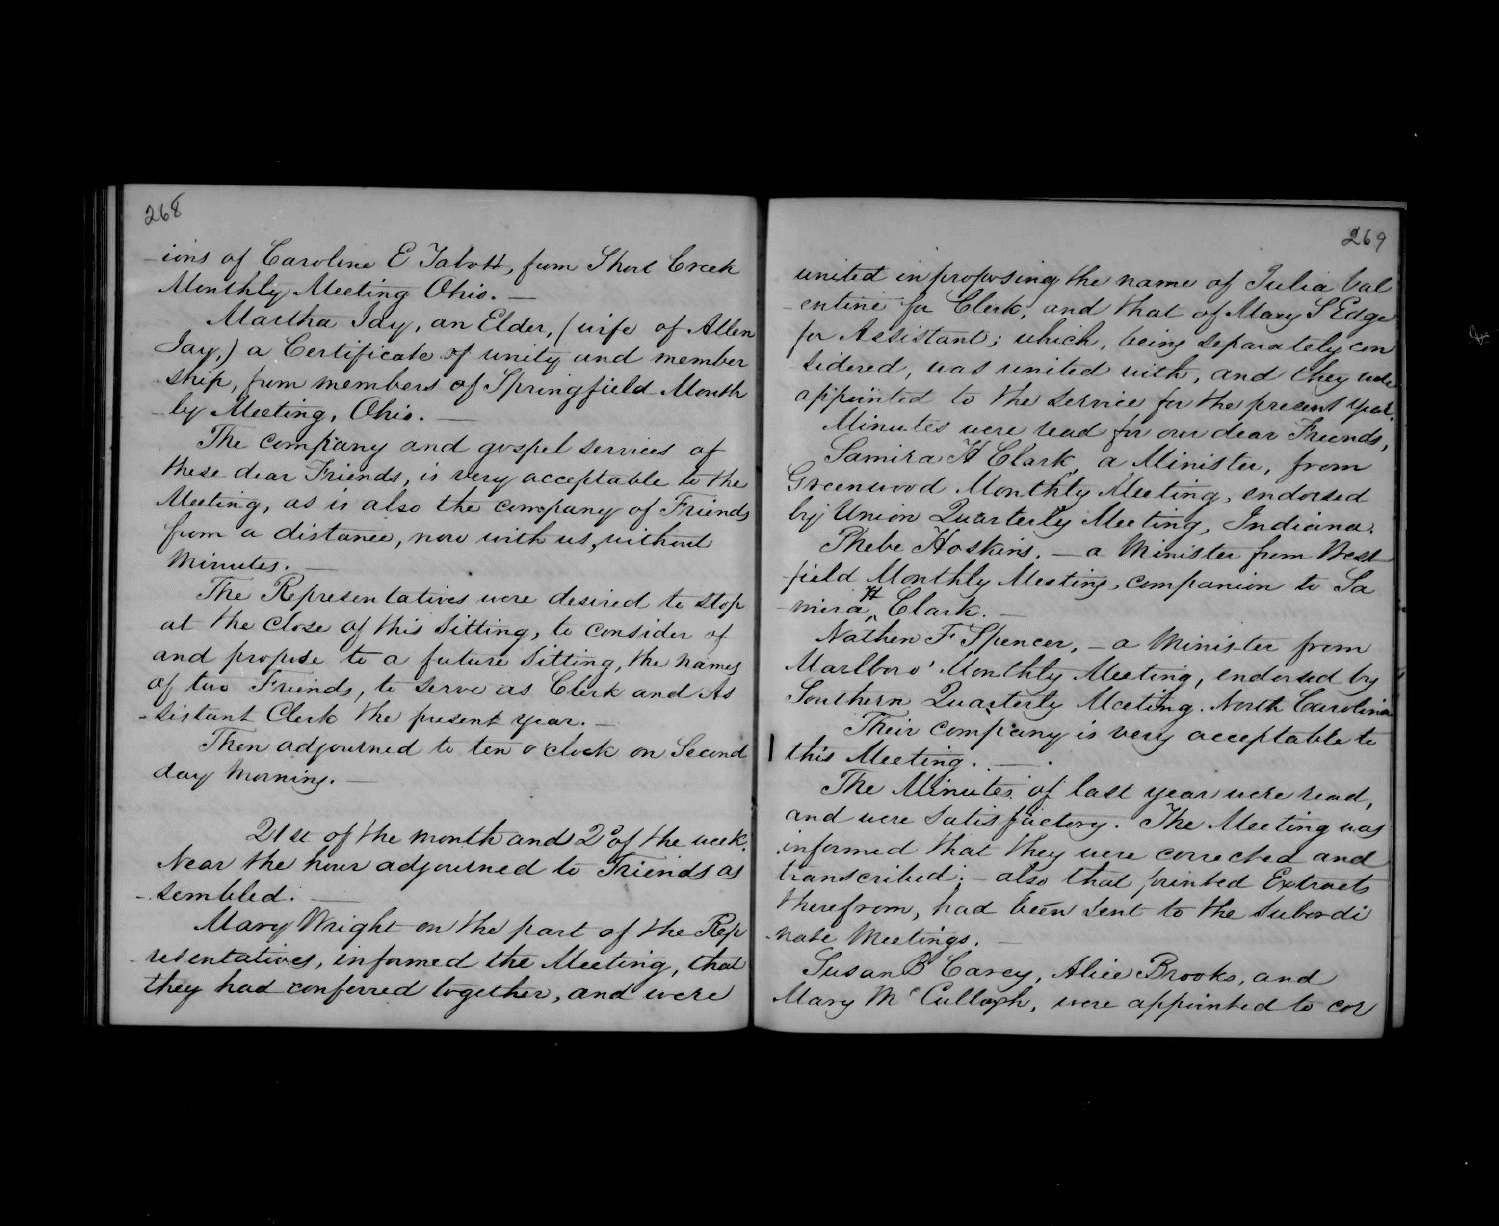 268
-ions of Caroline E Talbott, from Short Creek
Monthly Meeting Ohio. —
Martha Jay, an Elder, (wife of Allen
Jay,) a Certificate of unity and member
-ship, from members of Springfield Month
-ly Meeting, Ohio. —
The company and gospel services of
these dear Friends, is very acceptable to the
Meeting, as is also the company of Friends
from a distance, now with us, without
Minutes. —
The Representatives were desired to stop
at the close of this Sitting, to consider of
and propose to a future Sitting, the names
of two Friends, to serve as Clerk and As
-sistant Clerk the present year. —
Then adjourned to ten o'clock on Second
day Morning. —
21st of the month and 2d of the week.
Near the hour adjourned to Friends as
-sembled. —
Mary Wright on the part of the Rep
-resentatives, informed the Meeting, that
they had conferred together, and were
269
united in proposing the name of Julia Val
-entine for Clerk, and that of Mary S Edge
for Assistant; which, being separately con
-sidered, was united with, and they were
appointed to the service for the present year.
Minutes were read for our dear Friends,
Samira H Clark, a Minister, from
Greenwood Monthly Meeting, endorsed
by Union Quarterly Meeting, Indiana.
Phebe Hoskins, — a Minister from West
-field Monthly Meeting, companion to Sa
-mira H Clark. —
Nathan F Spencer, — a Minister from
Marlboro' Monthly Meeting, endorsed by
Southern Quarterly Meeting. North Carolina
Their company is very acceptable to
this Meeting. —
The Minutes of last year were read,
and were satisfactory. The Meeting was
informed that they were corrected and
transcribed; — also that printed Extracts
therefrom, had been sent to the Subordi
-nate Meetings. —
Susan B Carey, Alice Brooks, and
Mary McCullogh, were appointed to cor